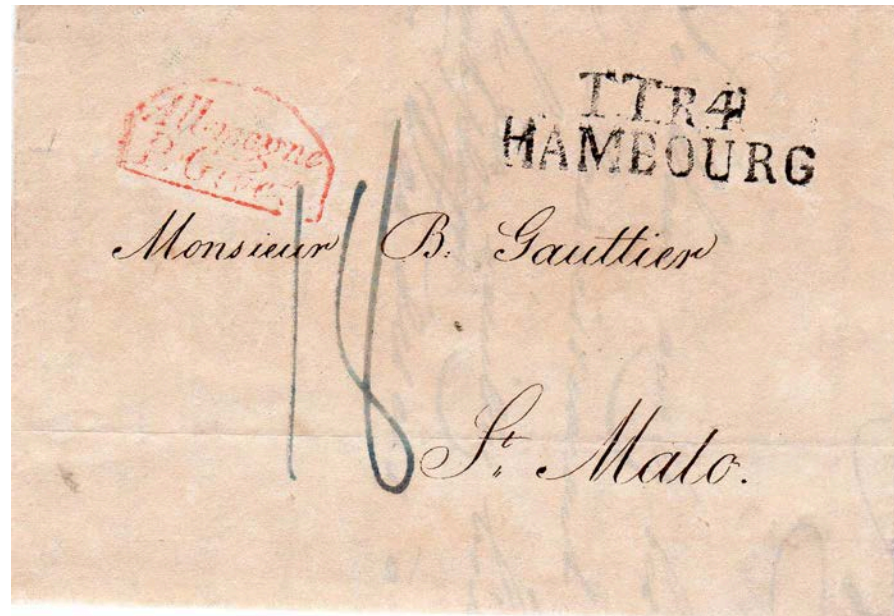 Allemagne
P. Givet
T.T.R.4
HAMBOURG
Monsieur B. Gauttier
18
St. Malo.